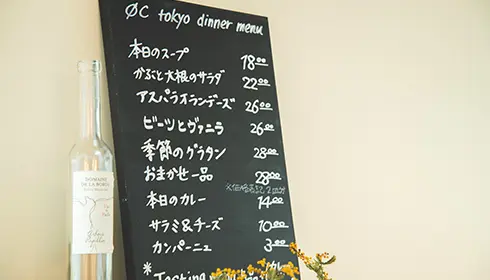 ØC tokyo dinner menu
本日のスープ 1800
かぶと大根のサラダ 2200
アスパラオランデーズ 2600
ビーツとヴァニラ 2600
季節のグラタン 2800
おまかせ一品 2800
本日のカレー 1400
サラミ&チーズ 1000
カンパーニュ 300
*Tasting
DOMAINE
DE LA BORDE